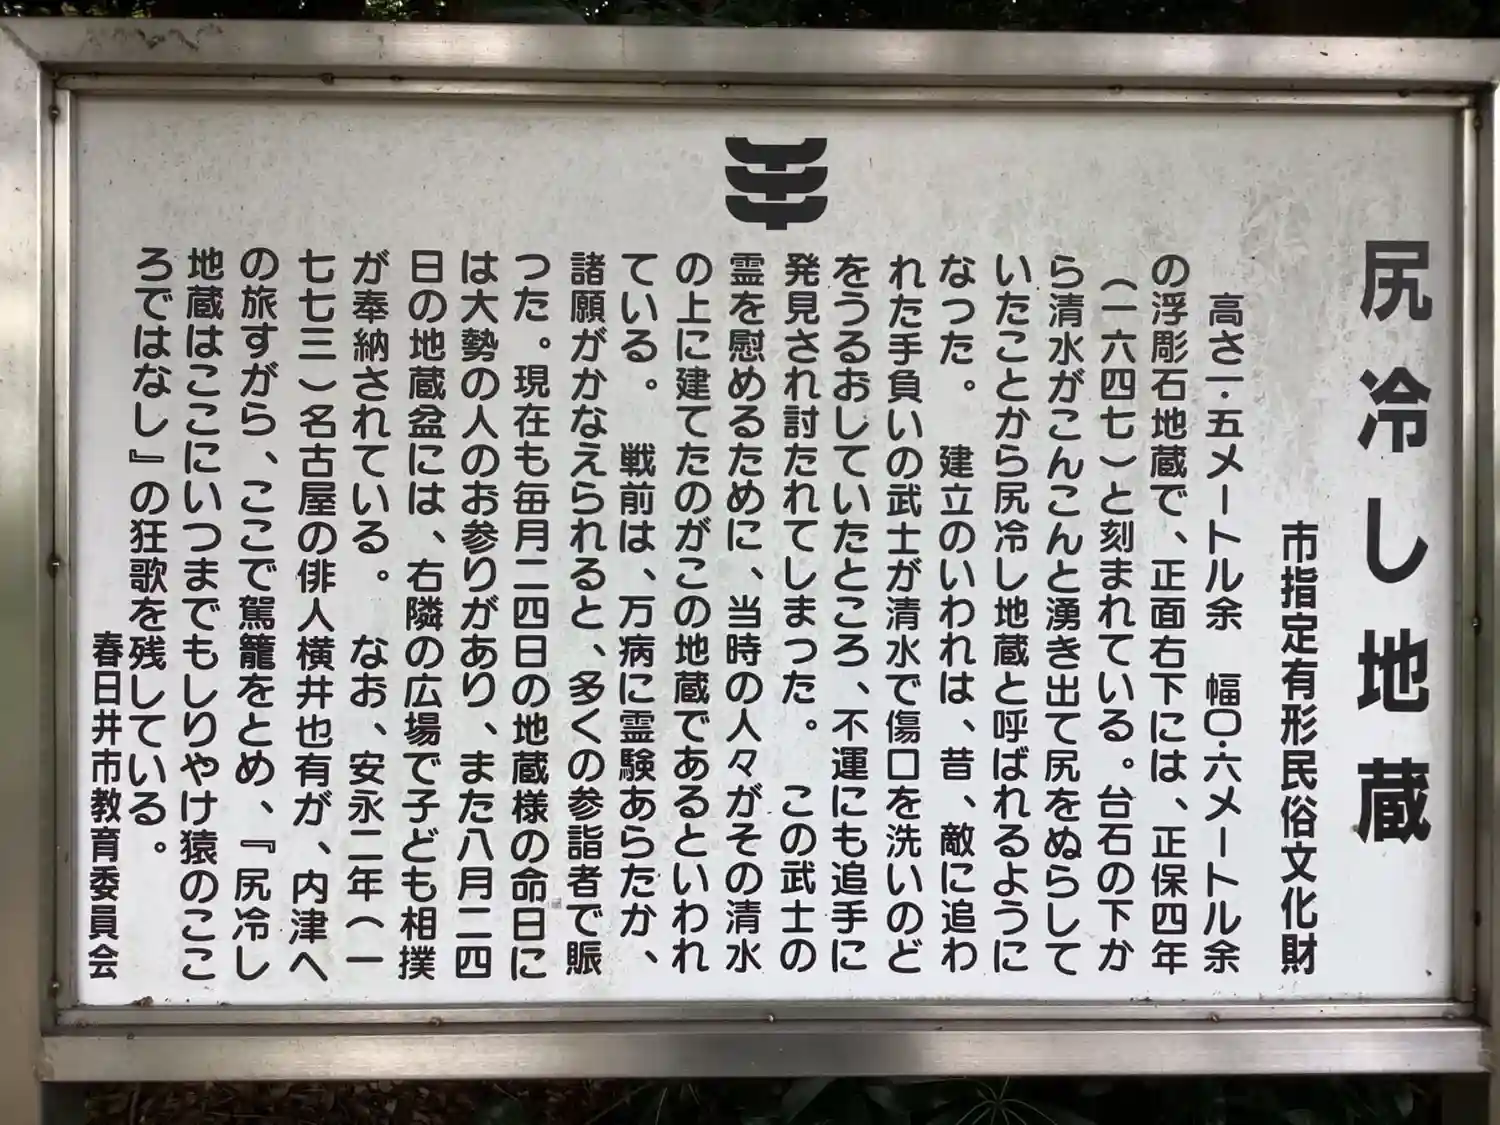 尻冷し地蔵
市指定有形民俗文化財
高さ一・五メートル余　幅〇・六メートル余
の浮彫石地蔵で、正面右下には、正保四年
（一六四七）と刻まれている。台石の下か
ら清水がこんこんと湧き出て尻をぬらして
いたことから尻冷し地蔵と呼ばれるように
なった。　建立のいわれは、昔、敵に追わ
れた手負いの武士が清水で傷口を洗いのど
をうるおしていたところ、不運にも追手に
発見され討たれてしまった。　この武士の
霊を慰めるために、当時の人々がその清水
の上に建てたのがこの地蔵であるといわれ
ている。　戦前は、万病に霊験あらたか、
諸願がかなえられると、多くの参詣者で賑
った。現在も毎月二四日の地蔵様の命日に
は大勢の人のお参りがあり、また八月二四
日の地蔵盆には、右隣の広場で子ども相撲
が奉納されている。　なお、安永二年（一
七七三）名古屋の俳人横井也有が、内津へ
の旅すがら、ここで駕籠をとめ、『尻冷し
地蔵はここにいつまでもしりやけ猿のここ
ろではなし』の狂歌を残している。
春日井市教育委員会